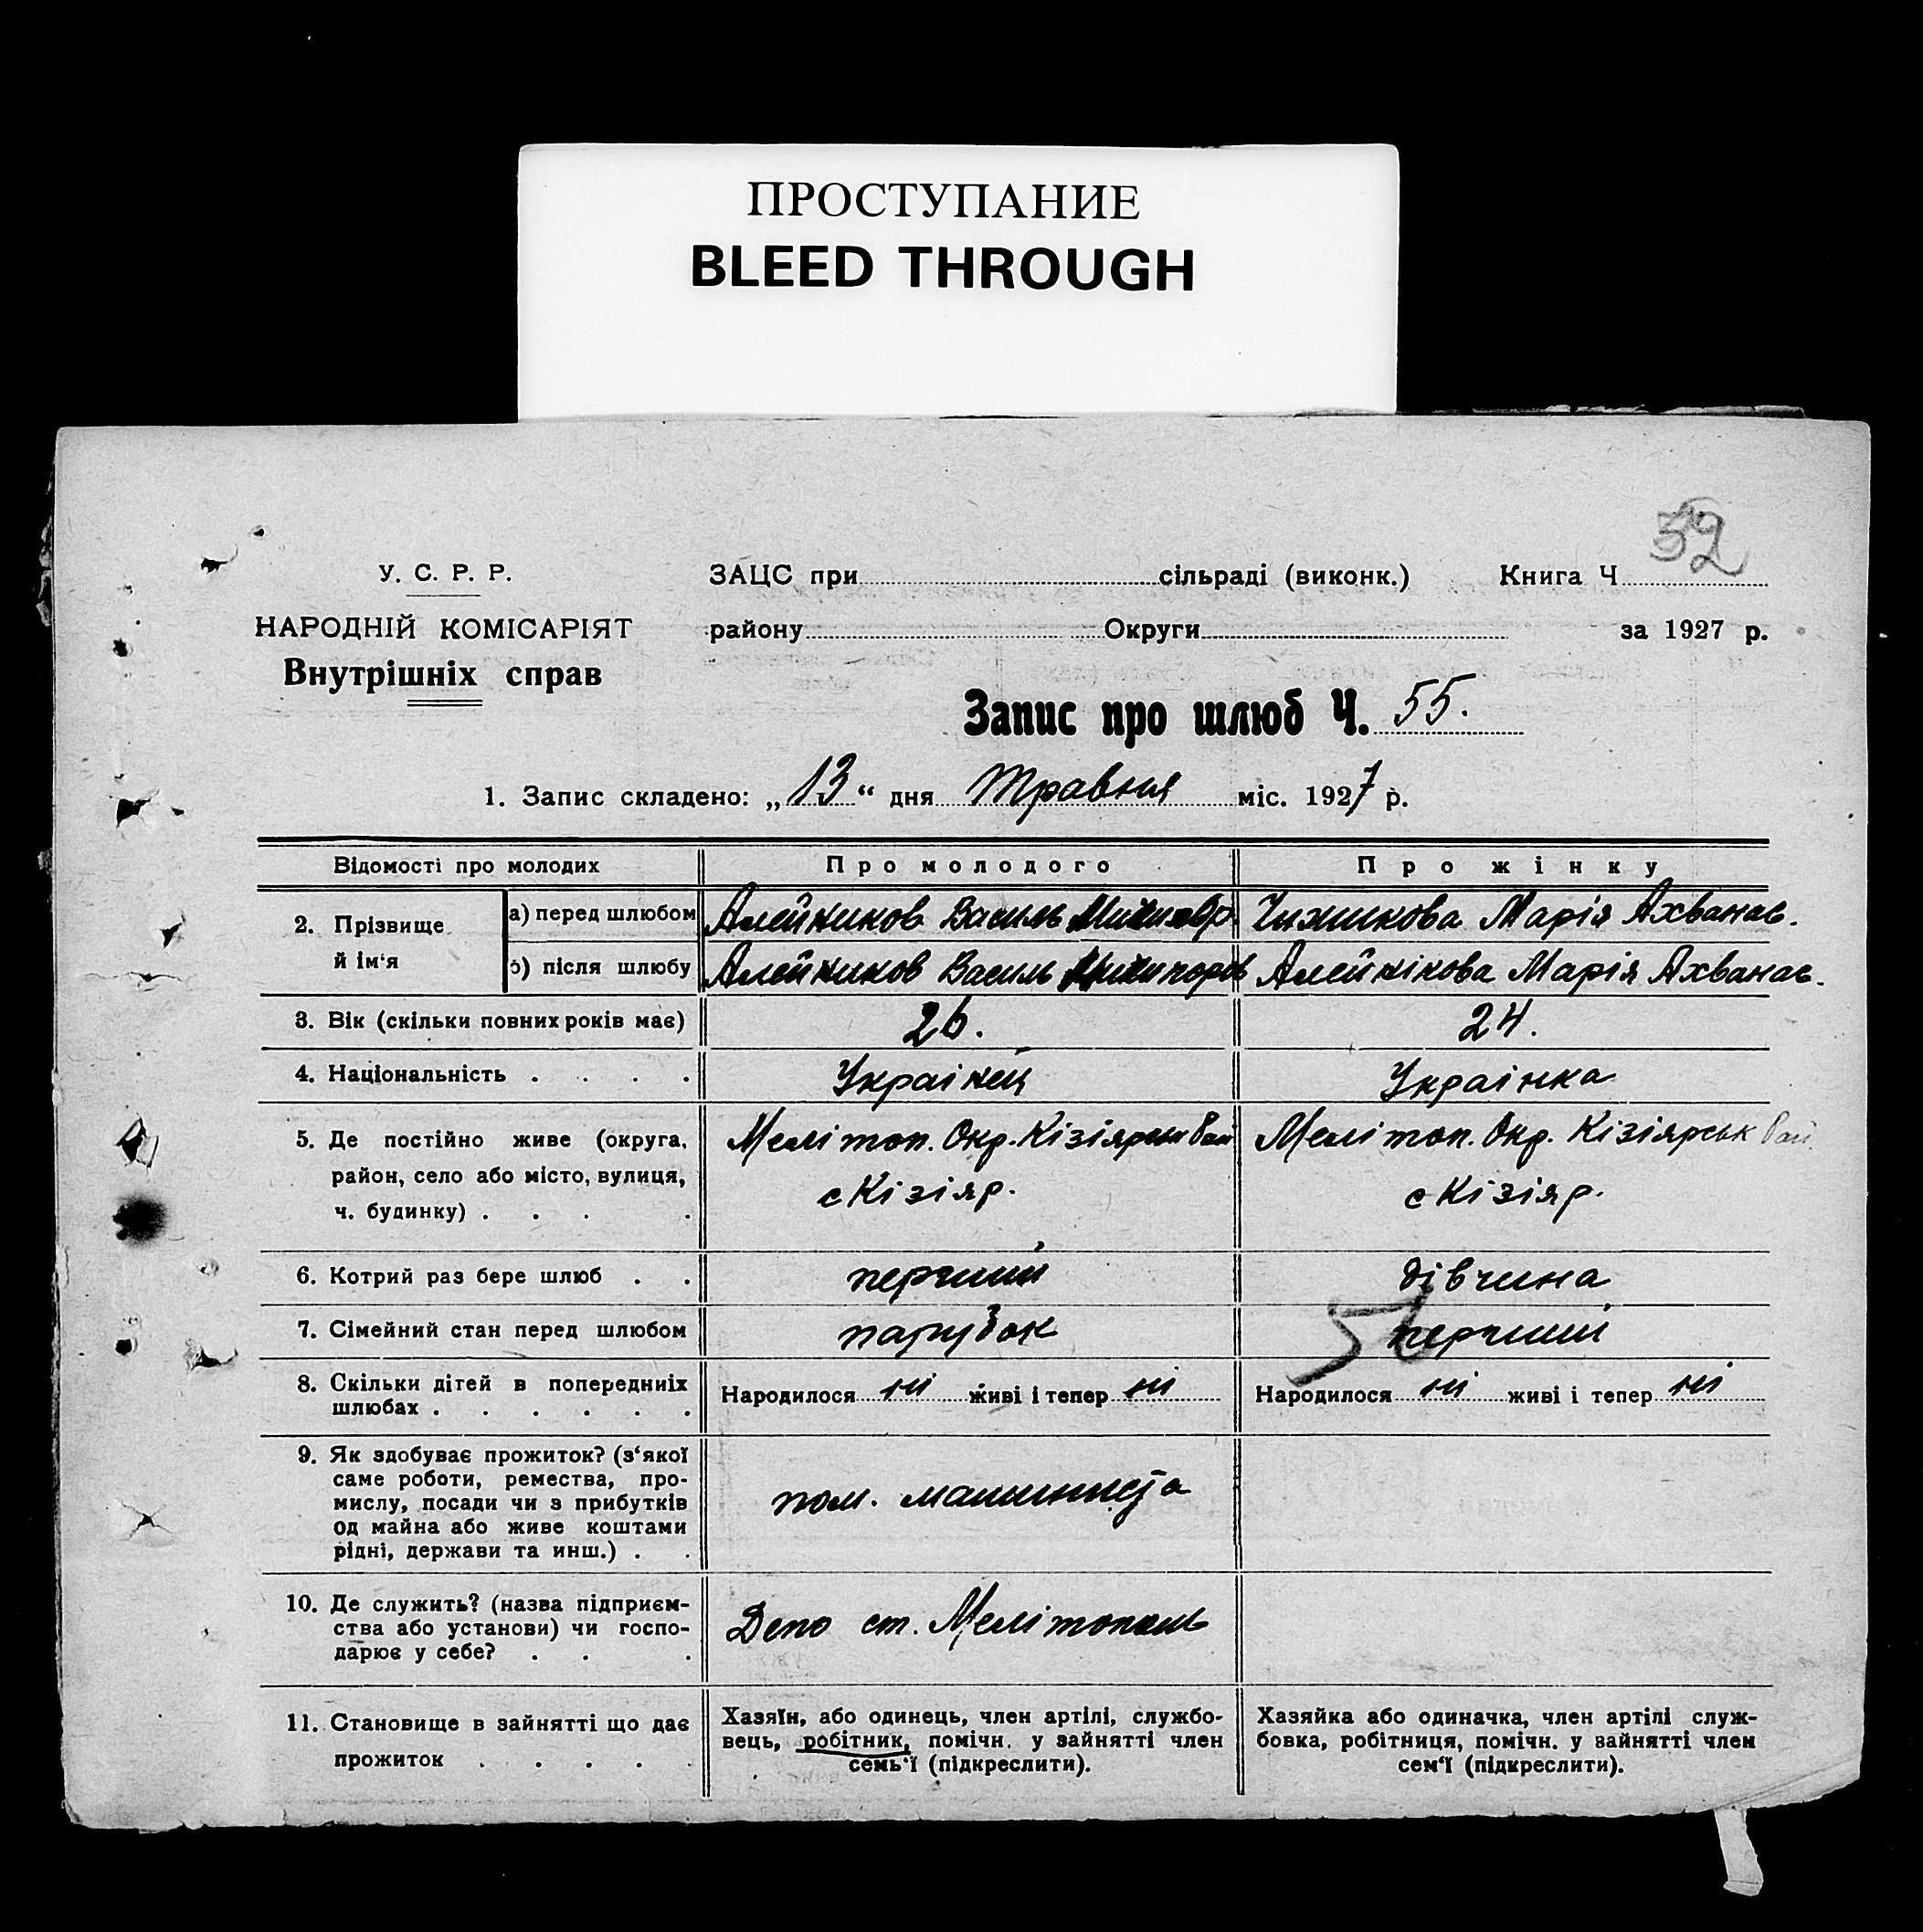 ПРОСТУПАНИЕ
BLEED THROUGH
52
У. С. Р. Р.
НАРОДНІЙ КОМІСАРІЯТ
Внутрішніх справ
ЗАЦС при сільраді (виконк.) Книга Ч
району Округи за 1927 р.
Запис про шлюб Ч. 55.
1. Запис складено: „13“ дня Травня міс. 1927 р.
Відомості про молодих Про молодого Про жінку
2. Прізвище й ім‘я
а) перед шлюбом Алейников Василь Чижикова Марія Ахванас.
б) після шлюбу Алейников Василь Никифоров Алейнікова Марія Ахванас.
3. Вік (скільки повних років має) 26. 24.
4. Національність . . . . Украінец Украінка
5. Де постійно живе (округа, Мелітоп. Окр. Кізіярськ Рай Мелітоп. Окр. Кізіярськ Рай.
район, село або місто, вулиця, с Кізіяр. с Кізіяр.
ч. будинку) . . . .
6. Котрий раз бере шлюб . . перший дівчина
7. Сімейний стан перед шлюбом парубок перший
8. Скільки дітей в попередниіх шлюбах . . . . . .
Народилося ні живі і тепер ні Народилося ні живі і тепер ні
9. Як здобуває прожиток? (з‘якої
саме роботи, ремества, про-
мислу, посади чи з прибутків
од майна або живе коштами
рідні, держави та инш.) . .
пом. машиниста
10. Де служить? (назва підприєм-
ства або установи) чи госпо-
дарює у себе? . . .
Депо ст. Мелітополь
11. Становище в зайнятті що дає
прожиток . . . . .
Хазяїн, або одинець, член артілі, службо-
вець, робітник, помічн. у зайнятті член
семь‘ї (підкреслити).
Хазяйка або одиначка, член артілі служ-
бовка, робітниця, помічн. у зайнятті член
сем‘ї (підкреслити).